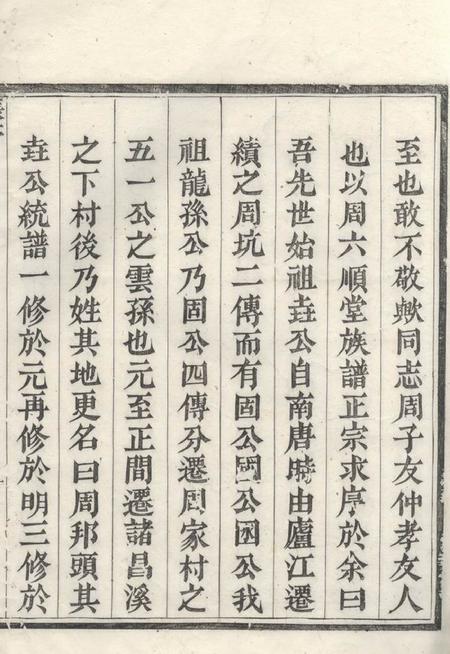 至也敢不敬歟同志周子友仲孝友人
也以周六順堂族譜正宗求序於余曰
吾先世始祖垚公自南唐時由廬江遷
績之周坑二傳而有固公國公困公我
祖龍孫公乃固公四傳分遷周家村之
五一公之雲孫也元至正間遷諸昌溪
之下村後乃姓其地更名曰周邦頭其
垚公統譜一修於元再修於明三修於